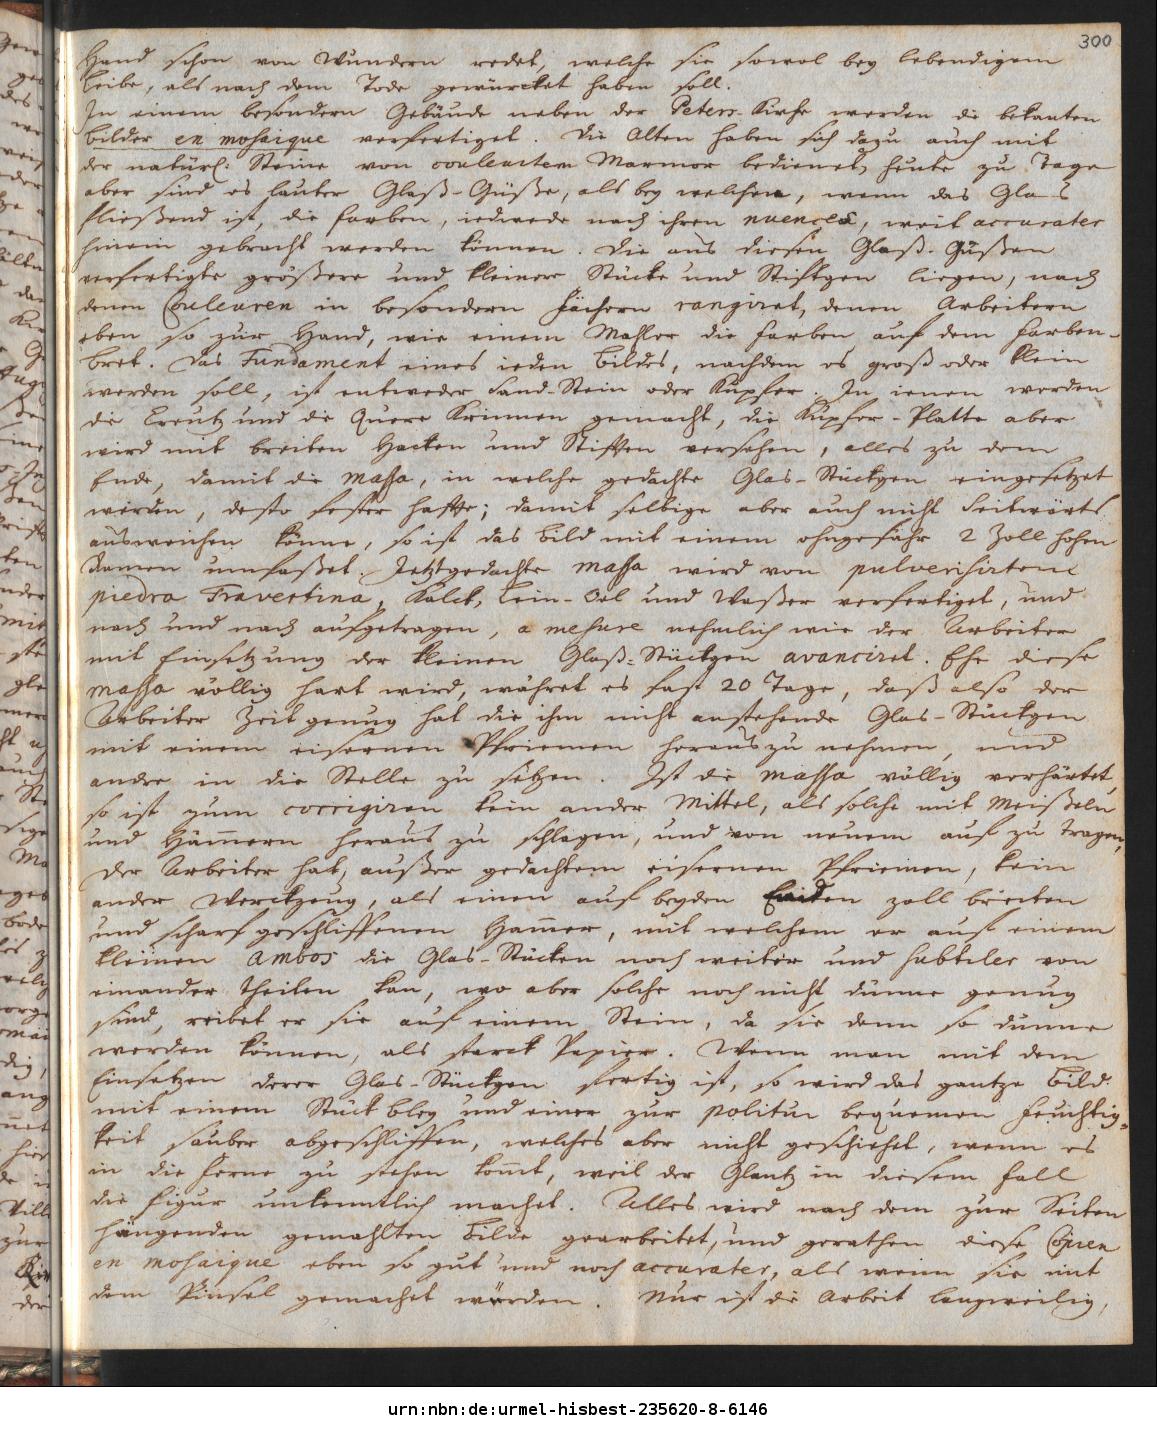 300
Hand schon von Wundern redet, welche sie sowol bey lebendigem
Leibe, als nach dem Tode gewürcket haben soll.
In einem besondern Gebäude neben der Peters-Kirche werden die bekanten
bilder en mosaique verfertiget. Die Alten haben sich dazu auch mit
der natürl: Steine von couleurtem Marmor bedienet, heute zu Tage
aber sind es lauter Glaß-Güße, als bey welchen, wenn das Glas
fließend ist, die farben, iedwede nach ihren nuences, weit accurater
hinein gebracht werden können. Die aus diesen Glaß-Güßen
verfertigte größere und kleinere Stücke und Stiftgen liegen, nach
denen Couleuren in besondern Fächern rangiret, denen Arbeitern
eben so zur Hand, wie einem Mahler die farben auf dem farben-
bret. Das Fundament eines ieden bildes, nachdem es groß oder klein
werden soll, ist entweder Sand-Stein oder Kupfer. In ienen werden
die Creutz und die Quere Krinnen gemacht, die Kupfer-Platte aber
wird mit breiten Hacken und Stifften versehen, alles zu dem
Ende, damit die massa, in welche gedachte Glas-Stückgen eingesetzet
werden, desto fester haffte; damit selbige aber auch nicht Seitwärts
ausweichen könne, so ist das bild mit einem ohngefähr 2 Zoll hohen
Ramen umfaßet. Jetztgedachte massa wird von pulverisirtem
piedra Travertina, Kalck, Lein-Oel und Waßer verfertiget, und
nach und nach aufgetragen, a mesure nehmlich wie der Arbeiter
mit Einsetzung der kleinen Glaß-Stückgen avanciret. Ehe diese
massa völlig hart wird, währet es fast 20 Tage, daß also der
Arbeiter Zeit genug hat die ihm nicht anstehende Glas-Stückgen
mit einem eisernen Pfriemen herauszu nehmen, und
andre in die Stelle zu setzen. Ist die massa völlig verhärtet,
so ist zum corrigiren kein ander Mittel, als solche mit Meißeln
und Hämmern heraus zu schlagen, und von neuem auf zu tragen,
Der Arbeiter hat, außer gedachtem eisernen Pfriemen, kein
ander Werckzeug, als einen auf beyden Enden zoll breiten
und scharf geschliffenen Hammer, mit welchem er auf einem
kleinen Ambos die Glas-Stücken noch weiter und subtiler von
einander theilen kan, wo aber solche noch nicht dünne genug
sind, reibet er sie auf einem Stein, da sie denn so dünne
werden können, als starck Papier. Wenn man mit dem
Einsetzen derer Glas-Stückgen fertig ist, so wird das gantze bild
mit einem Stück bley und einer zur politur bequemen Feuchtig-
keit sauber abgeschliffen, welches aber nicht geschiehet, wenn es
in die ferne zu stehen komt, weil der Glantz in diesem fall
die figur unkenntlich machet. Alles wird nach dem zur Seiten
hängenden gemahlten bilde gearbeitet, und gerathen diese Copien
en mosaique eben so gut und noch accurater, als wenn sie mit
dem Pinsel gemachet würden. Nur ist die Arbeit langweilig,
urn:nbn:de:urmel-hisbest-235620-8-6146